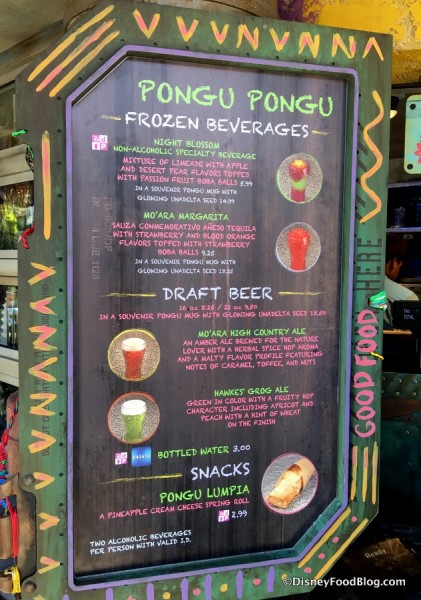 PONGU PONGU
FROZEN BEVERAGES
NIGHT BLOSSOM
NON-ALCOHOLIC SPECIALTY BEVERAGE
MIXTURE OF LIMEADE WITH APPLE
AND DESERT PEAR FLAVORS TOPPED
WITH PASSION FRUIT BOBA BALLS 5.99
IN A SOUVENIR PONGU MUG WITH
GLOWING UNADELTA SEED 14.99
MO'ARA MARGARITA
SAUZA CONMEMORATIVO AÑEJO TEQUILA
WITH STRAWBERRY AND BLOOD ORANGE
FLAVORS TOPPED WITH STRAWBERRY
BOBA BALLS
IN A SOUVENIR PONGU MUG WITH
GLOWING UNADELTA SEED
DRAFT BEER
IN A SOUVENIR PONGU MUG WITH GLOWING UNADELTA SEED
MO'ARA HIGH COUNTRY ALE
AN AMBER ALE BREWED FOR THE NATURE
LOVER WITH A HERBAL SPICE HOP AROMA
AND A MALTY FLAVOR PROFILE FEATURING
NOTES OF CARAMEL, TOFFEE, AND NUTS
HAWKES' GROG ALE
GREEN IN COLOR WITH A FRUITY HOP
CHARACTER INCLUDING APRICOT AND
PEACH WITH A HINT OF WHEAT
ON THE FINISH
BOTTLED WATER 3.00
SNACKS
PONGU LUMPIA
A PINEAPPLE CREAM CHEESE SPRING ROLL
2.99
TWO ALCOHOLIC BEVERAGES
PER PERSON WITH VALID I.D.
GOOD FOOD HERE
©DisneyFoodBlog.com